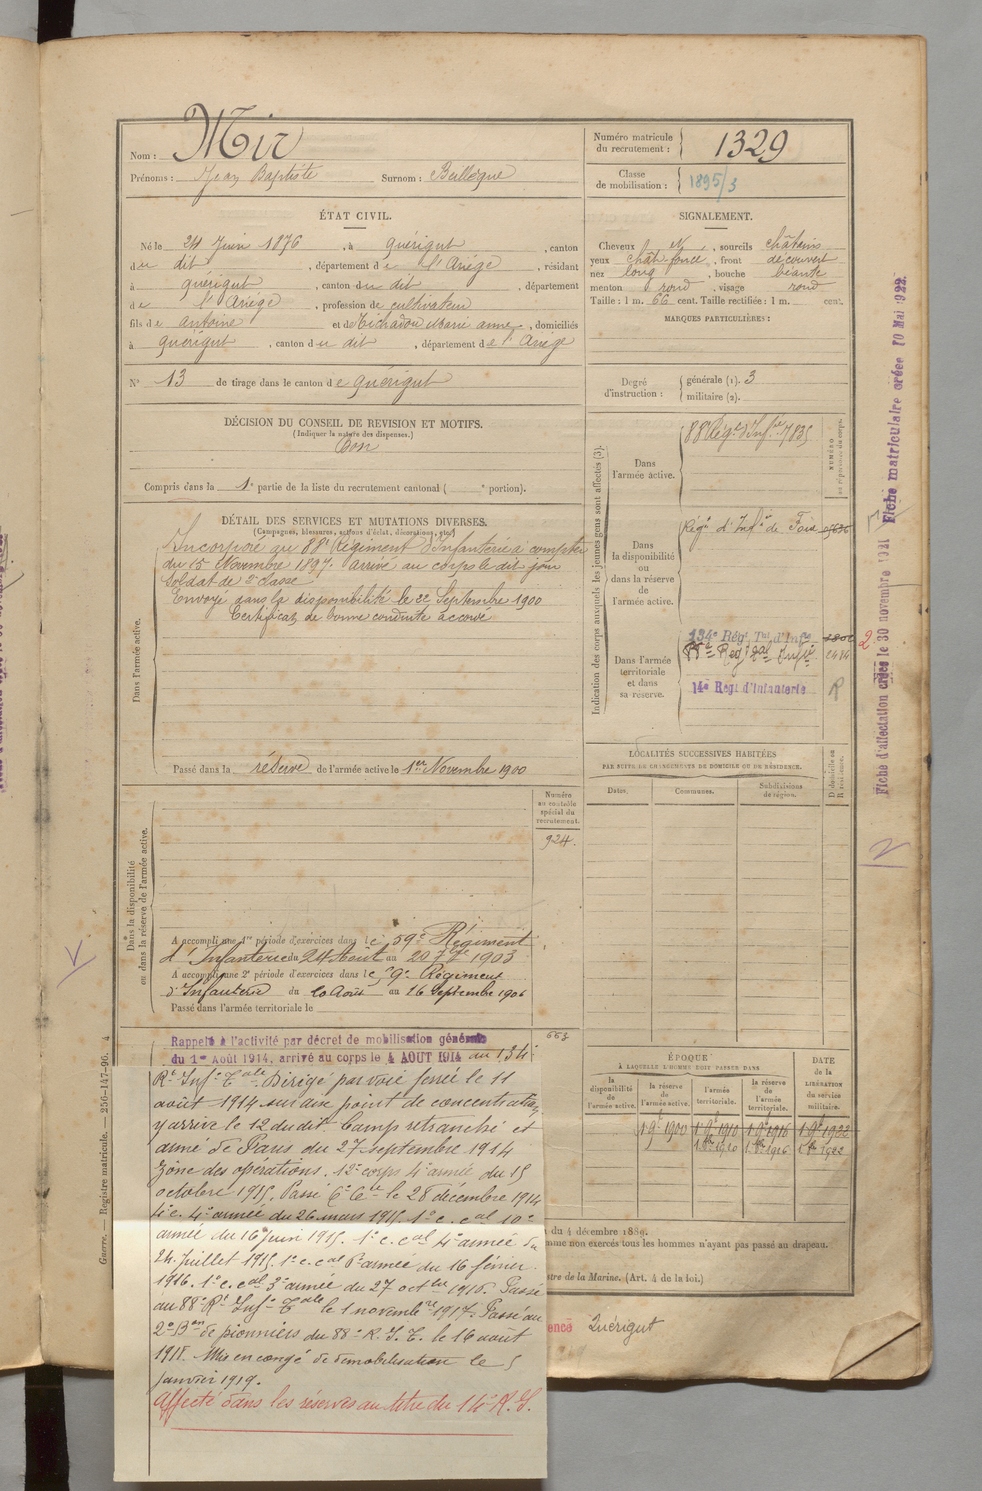 Nom : Mir
Prénoms : Jean Baptiste Surnom :
Numéro matricule du recrutement : 1329
Classe de mobilisation : 1895/3
ÉTAT CIVIL.
Né le 24 Juin 1876, à Quérigut, canton
du dit, département de l'Ariège, résidant
à Quérigut, canton du dit, département
de l'Ariège, profession de cultivateur
fils de Antoine et de Marie anne, domiciliés
à Quérigut, canton du dit, département de l'Ariège
N° 13 de tirage dans le canton de Quérigut
SIGNALEMENT.
Cheveux et, sourcils châtains
yeux chât foncé, front découvert
nez long, bouche béante
menton rond, visage rond
Taille : 1 m. 66 cent. Taille rectifiée : 1 m. cent.
MARQUES PARTICULIÈRES :
Degré d'instruction : générale (1). 3
militaire (2).
DÉCISION DU CONSEIL DE REVISION ET MOTIFS.
(Indiquer la nature des dispenses.)
Bon
Compris dans la 1e partie de la liste du recrutement cantonal ( e portion).
DÉTAIL DES SERVICES ET MUTATIONS DIVERSES.
(Campagnes, blessures, actions d'éclat, décorations, etc.)
Dans l'armée active.
Incorporé au 88e Régiment d'Infanterie à compter
du 15 Novembre 1897. Arrivé au corps le dit jour
Soldat de 2e classe
Envoyé dans la disponibilité le 22 Septembre 1900
Certificat de bonne conduite accordé
Passé dans la réserve de l'armée active le 1er Novembre 1900
Indication des corps auxquels les jeunes gens sont affectés (3).
NUMÉRO au répertoire du corps.
Dans l'armée active.
88e Régt d'Infie 7835
Dans la disponibilité ou dans la réserve de l'armée active.
Régt d'Infie de Foix
Dans l'armée territoriale et dans sa réserve.
134e Régt Tal d'Infie
14e Régt d'Infanterie R
2
LOCALITÉS SUCCESSIVES HABITÉES
PAR SUITE DE CHANGEMENTS DE DOMICILE OU DE RÉSIDENCE.
Dates. Communes. Subdivisions de région. D domicile ou R résidence.
Dans la disponibilité ou dans la réserve de l'armée active.
Numéro au contrôle spécial du recrutement.
924.
A accompli une 1re période d'exercices dans le 59e Régiment
d'Infanterie du 24 Août au 20 7bre 1903
A accompli une 2e période d'exercices dans le 59e Régiment
d'Infanterie du 20 Août au 16 Septembre 1906
Passé dans l'armée territoriale le
663
Rappelé à l'activité par décret de mobilisation générale
du 1er Août 1914, arrivé au corps le 4 AOUT 1914 au 134
Rt Infie Tale. Dirigé par voie ferrée le 11
août 1914 sur son point de concentration
y arrive le 12 du dit Camp retranché et
armé de Paris du 27 septembre 1914
Zône des opérations. 12e corps 4e armée du 15
octobre 1915. Passé 6e Cie le 28 décembre 1914
4e armée du 26 mars 1915. 1e c. cal 10e
armée du 16 Juin 1915. 1e c. cal 4e armée du
24 Juillet 1915. 1e c. cal 6e armée du 16 février
1916. 1e c. cal 3e armée du 27 octbre 1916. Passé
au 88e Rt Infie Tale le 1 novembre 1917. Passé au
2e Bon de pionniers du 88e R. I. T. le 16 août
1918. Mis en congé de démobilisation le 5
janvier 1919.
Affecté dans les réserves au titre du 14e R. I.
ÉPOQUE
À LAQUELLE L'HOMME DOIT PASSER DANS
la disponibilité de l'armée active. la réserve de l'armée active. l'armée territoriale. la réserve de l'armée territoriale.
DATE de la LIBÉRATION du service militaire.
1 9bre 1900 1 9bre 1910 1 9bre 1916 1 9bre 1922
du 4 décembre 1889.
mme non exercés tous les hommes n'ayant pas passé au drapeau.
stre de la Marine. (Art. 4 de la loi.)
ence Quérigut
Guerre. — Registre matricule. — 256-147-96. 4
Fiche d'affectation créée le 30 novembre 1921
Fiche matriculaire créée 10 Mai 1922